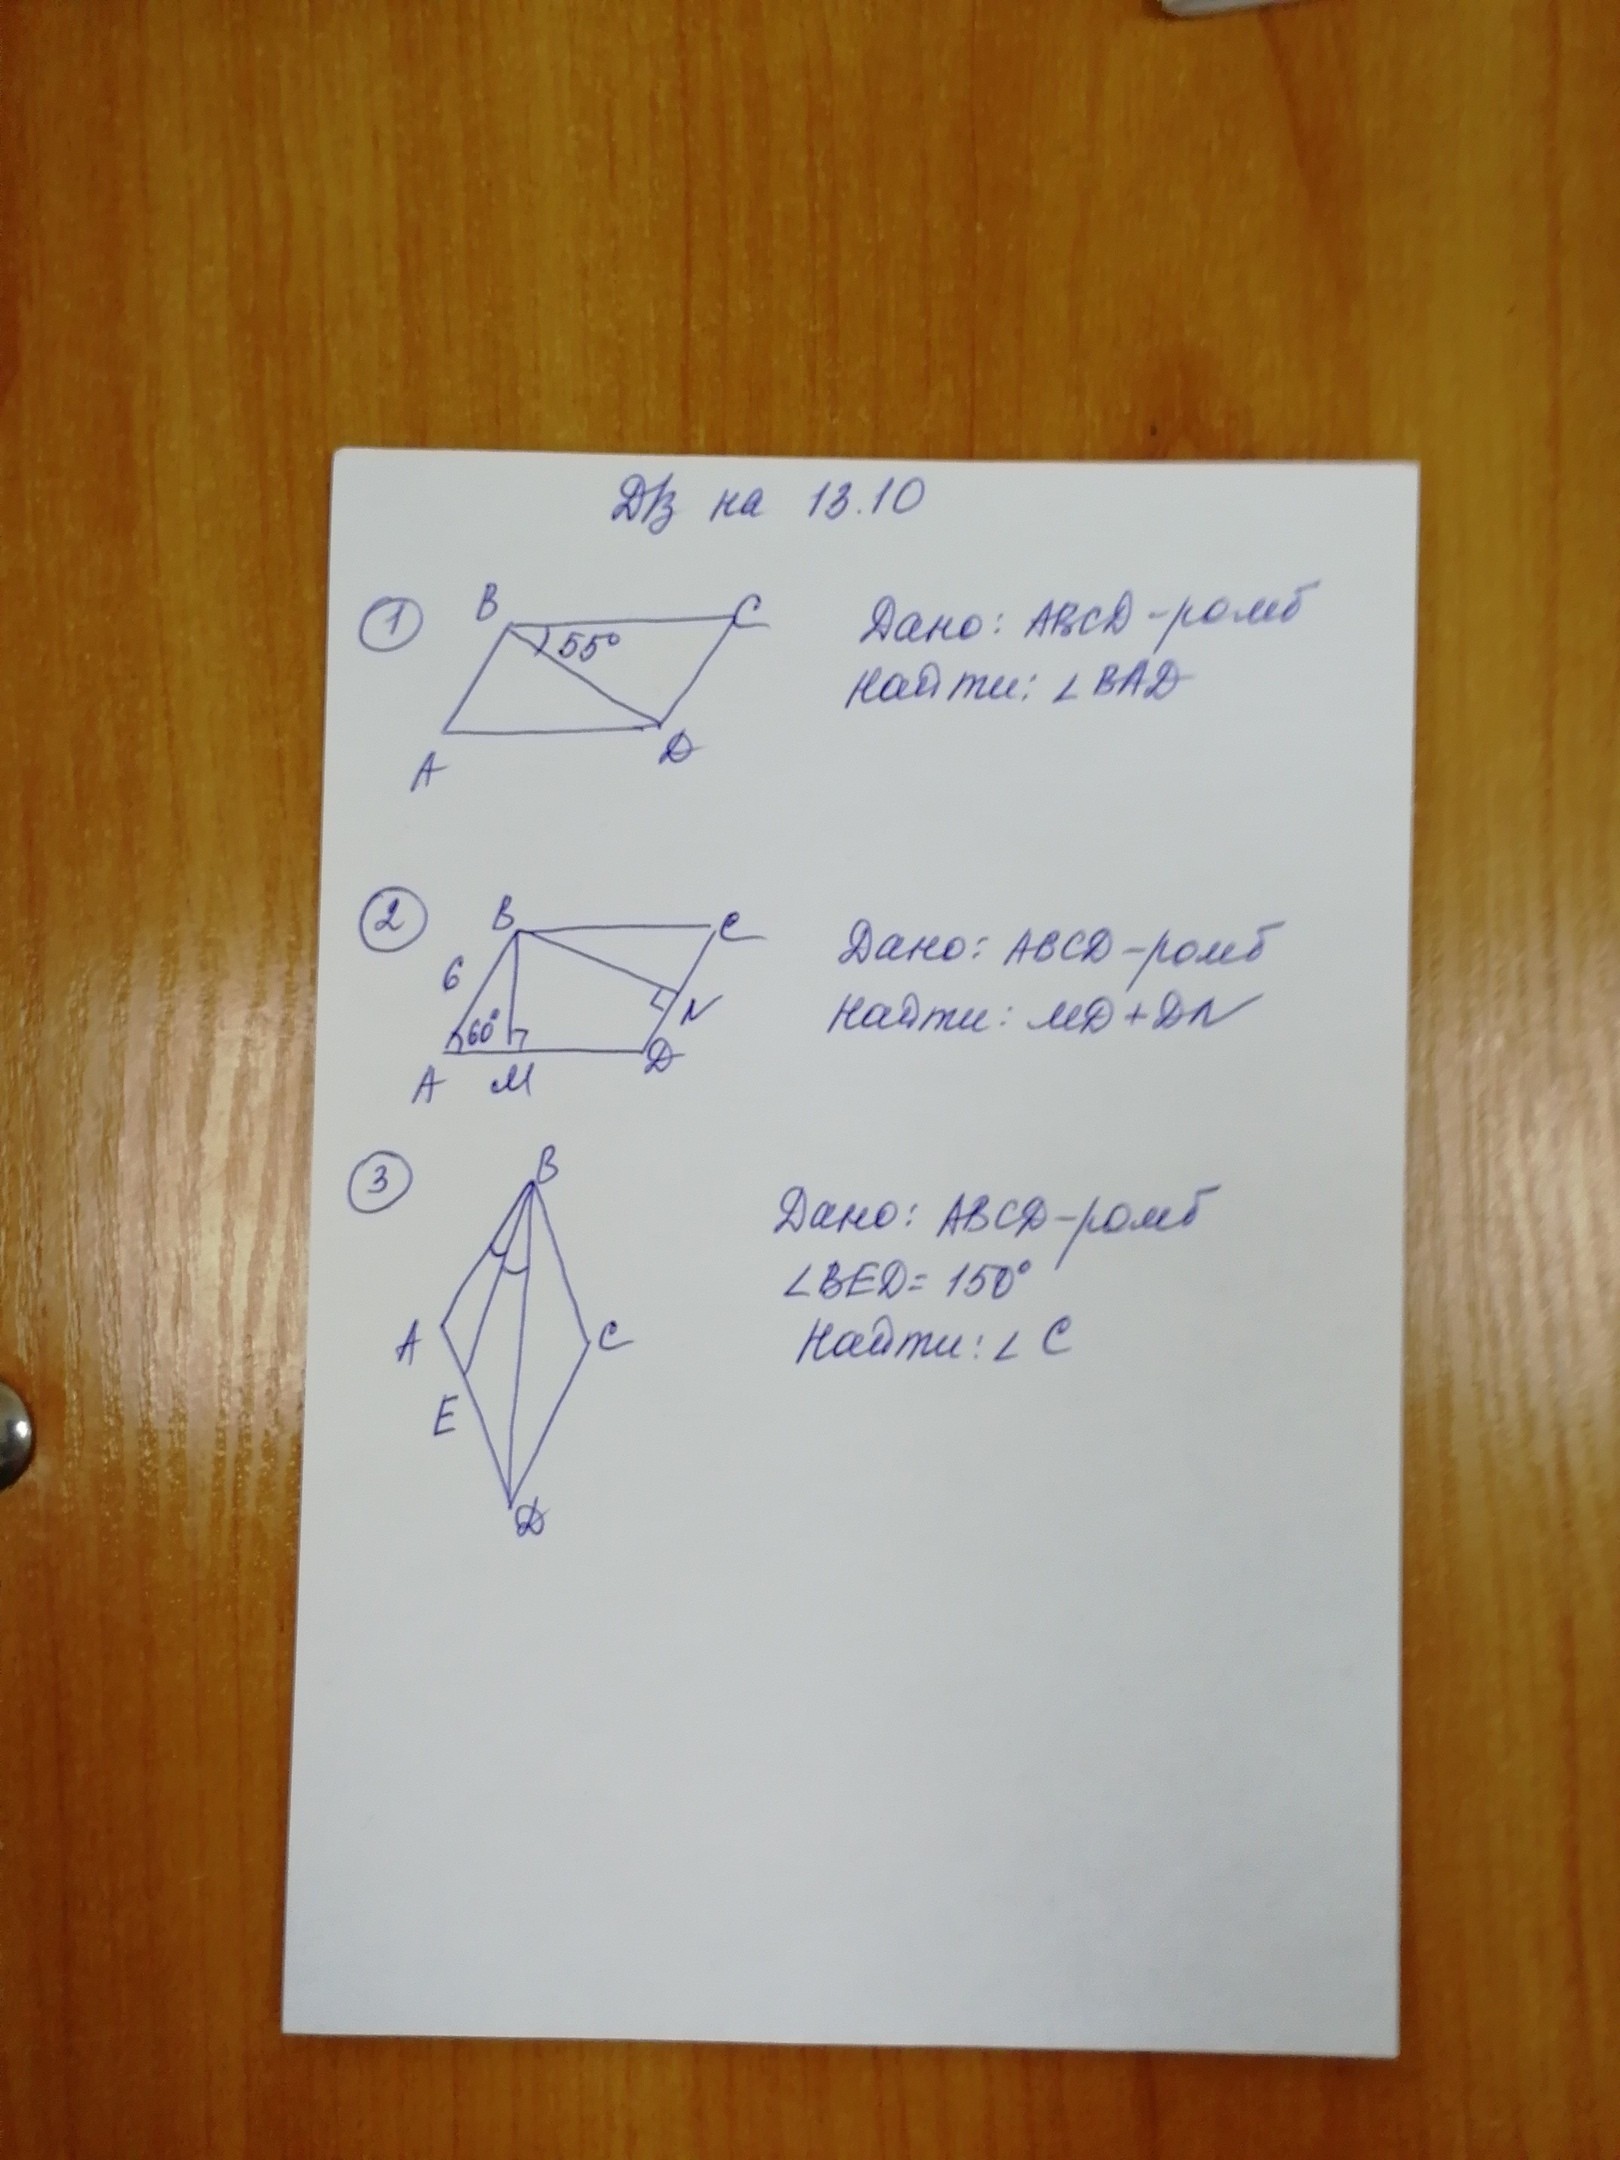 ДЗ на 13.10
1
B
C
55°
A
D
Дано: ABCD - ромб
Найти: ∠BAD
2
B
C
6
60°
N
A
M
D
Дано: ABCD - ромб
Найти: MD + DN
3
B
A
C
E
D
Дано: ABCD - ромб
∠BED = 150°
Найти: ∠C